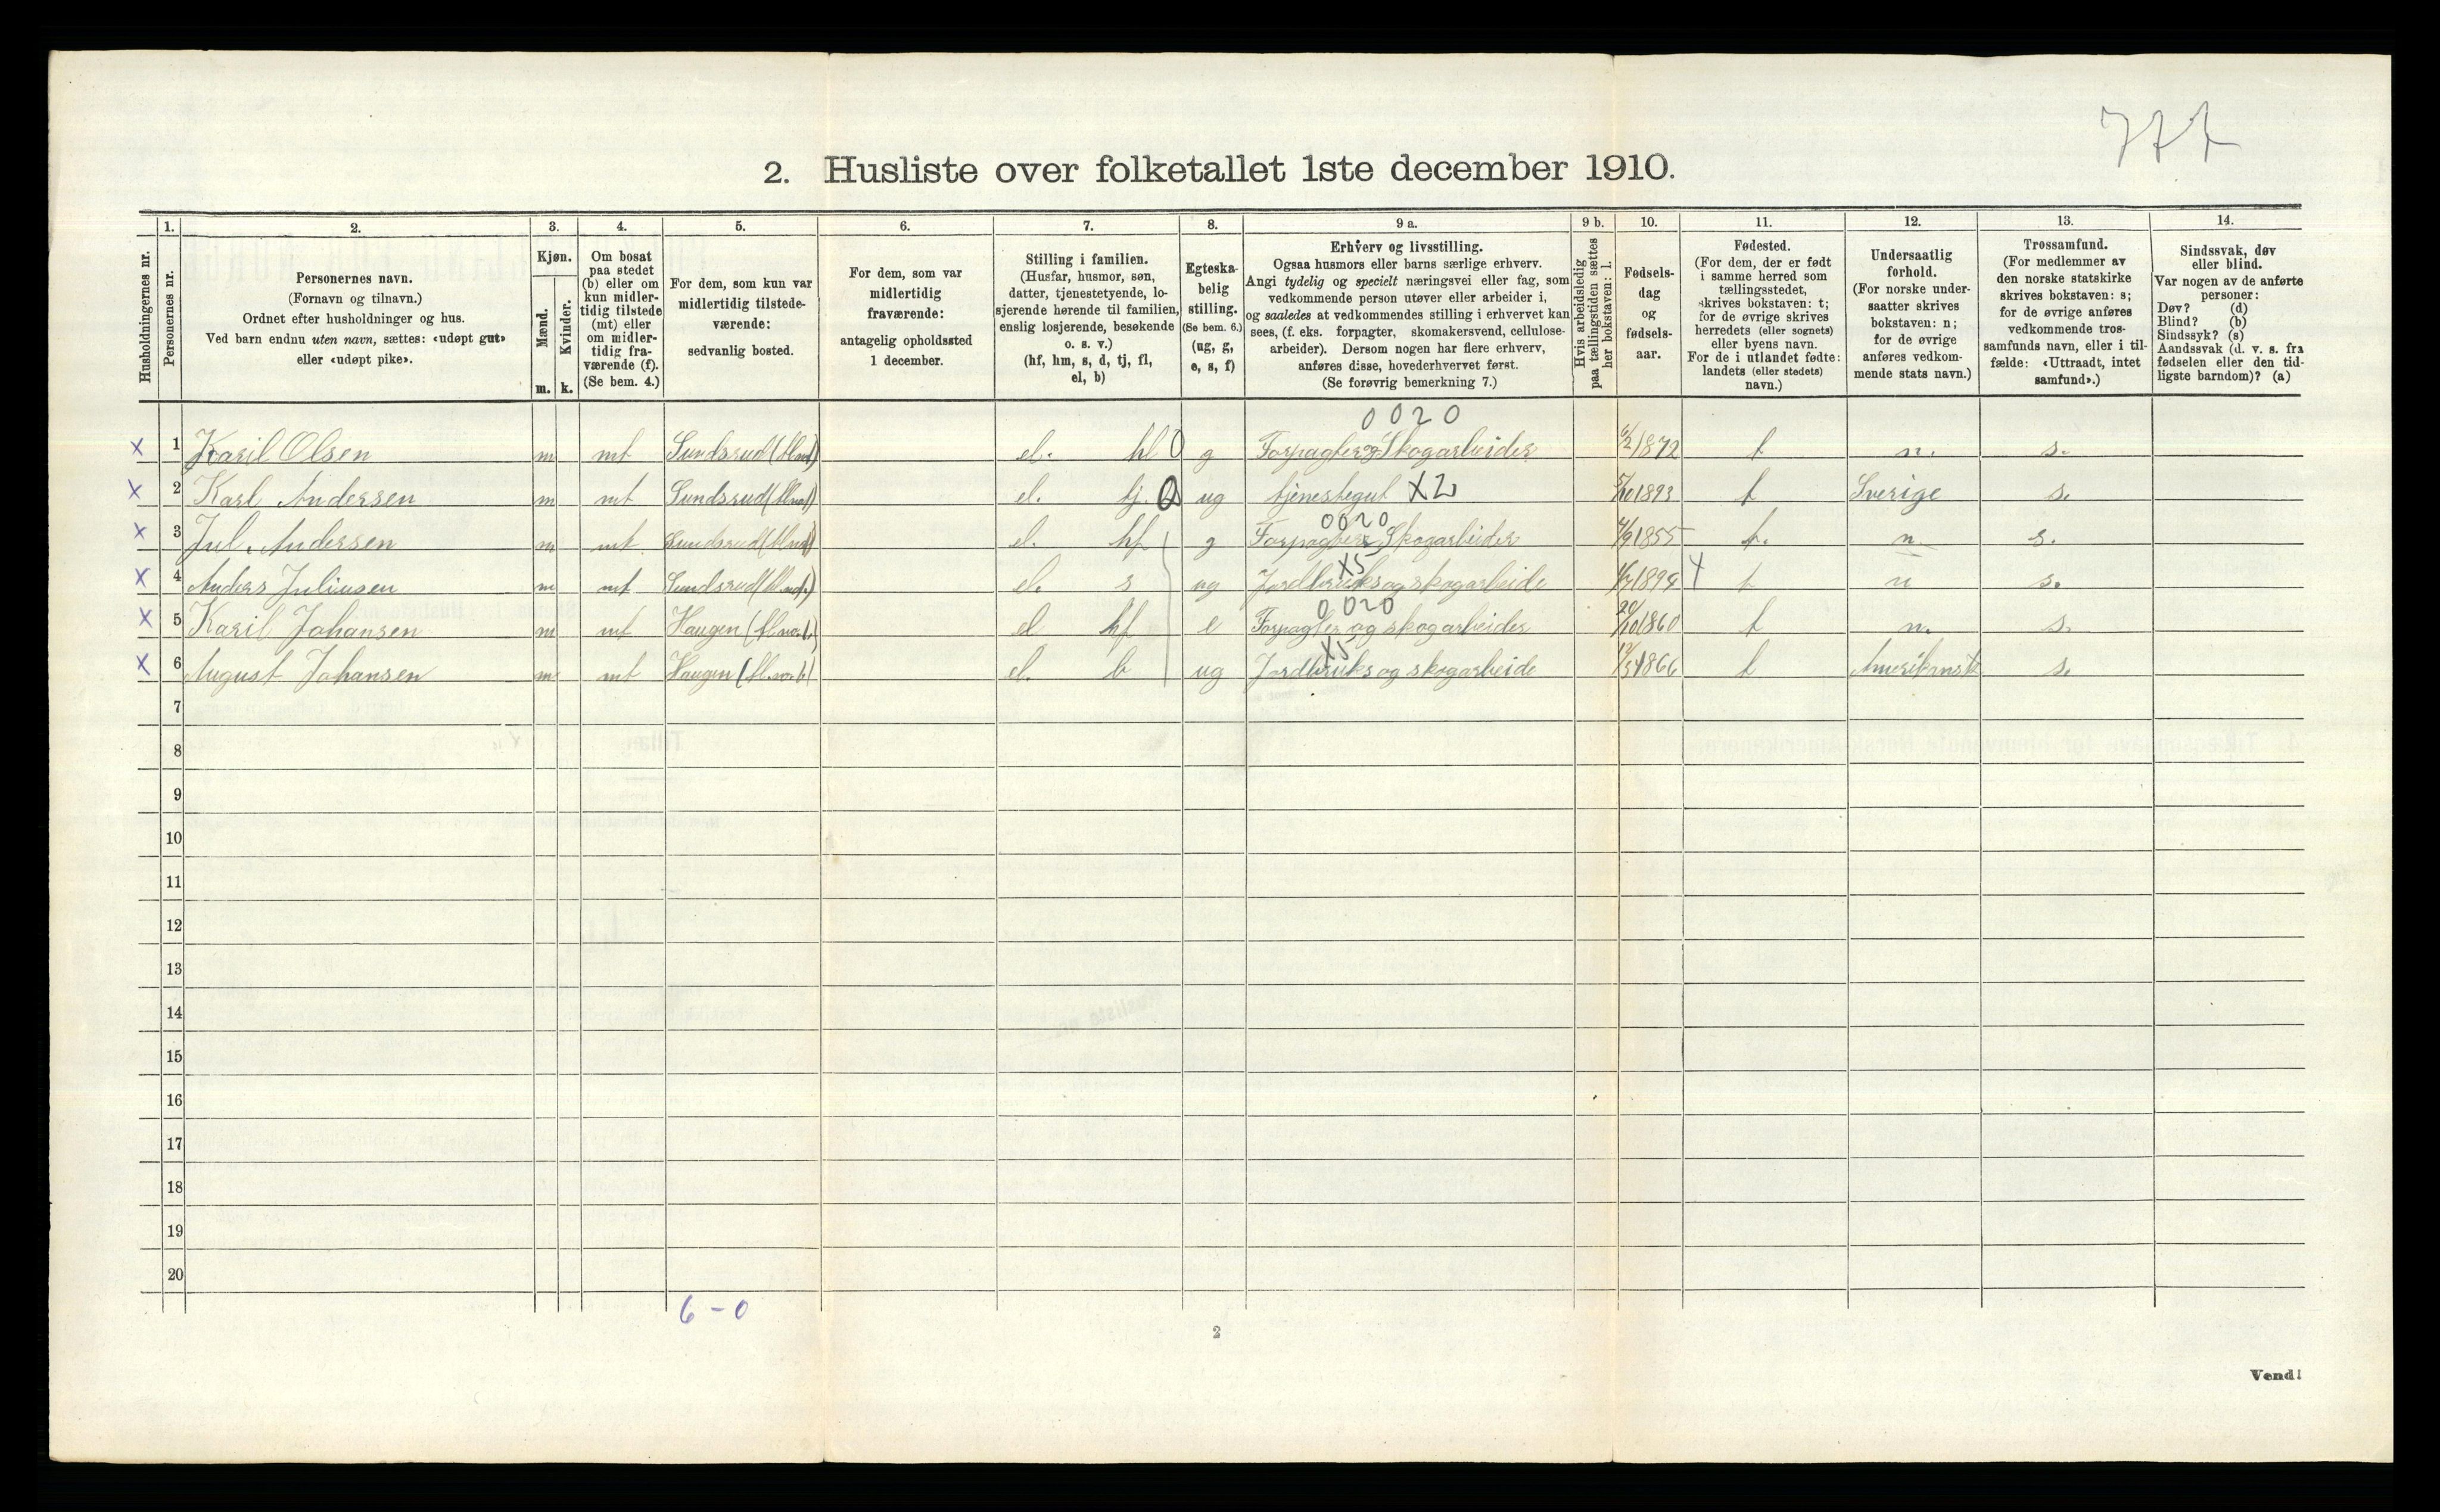 2. Husliste over folketallet 1ste december 1910.
Husholdningernes nr.
1.
Personernes nr.
2.
Personernes navn.
(Fornavn og tilnavn.)
Ordnet efter husholdninger og hus.
Ved barn endnu uten navn, sættes: «udøpt gut»
eller «udøpt pike».
3.
Kjøn.
Mænd.
Kvinder.
m. k.
4.
Om bosat
paa stedet
(b) eller om
kun midler-
tidig tilstede
(mt) eller
om midler-
tidig fra-
værende (f).
(Se bem. 4.)
5.
For dem, som kun var
midlertidig tilstede-
værende:
sedvanlig bosted.
6.
For dem, som var
midlertidig
fraværende:
antagelig opholdssted
1 december.
7.
Stilling i familien.
(Husfar, husmor, søn,
datter, tjenestetyende, lo-
sjerende hørende til familien,
enslig losjerende, besøkende
o. s. v.)
(hf, hm, s, d, tj, fl,
el, b)
8.
Egteska-
belig
stilling.
(Se bem. 6.)
(ug, g,
e, s, f)
9 a.
Erhverv og livsstilling.
Ogsaa husmors eller barns særlige erhverv.
Angi tydelig og specielt næringsvei eller fag, som
vedkommende person utøver eller arbeider i,
og saaledes at vedkommendes stilling i erhvervet kan
sees, (f. eks. forpagter, skomakersvend, cellulose-
arbeider). Dersom nogen har flere erhverv,
anføres disse, hovederhvervet først.
(Se forøvrig bemerkning 7.)
9 b.
Hvis arbeidsledig
paa tællingstiden sættes
her bokstaven: l.
10.
Fødsels-
dag
og
fødsels-
aar.
11.
Fødested.
(For dem, der er født
i samme herred som
tællingsstedet,
skrives bokstaven: t;
for de øvrige skrives
herredets (eller sognets)
eller byens navn.
For de i utlandet fødte:
landets (eller stedets)
navn.)
12.
Undersaatlig
forhold.
(For norske under-
saatter skrives
bokstaven: n;
for de øvrige
anføres vedkom-
mende stats navn.)
13.
Trossamfund.
(For medlemmer av
den norske statskirke
skrives bokstaven: s;
for de øvrige anføres
vedkommende tros-
samfunds navn, eller i til-
fælde: «Uttraadt, intet
samfund».)
14.
Sindssvak, døv
eller blind.
Var nogen av de anførte
personer:
Døv? (d)
Blind? (b)
Sindssyk? (s)
Aandssvak (d. v. s. fra
fødselen eller den tid-
ligste barndom)? (a)
0020
x 1 Karil Olsen m mt Sundsrud el. 0 g Forpagter og Skogarbeider 6/2 1872 t n. s.
x 2 Karl Andersen m mt Sundsrud el. tj. ug tjenestegut X2 1893 t Sverige s.
0020
x 3 Jul. Andersen m mt Sundsrud el. hf g Forpagter Skogarbeider 1855 t. n s.
X5
x 4 Anders Juliusen m mt Sundsrud el. s ug Jordbruks og skogarbeide t n s.
0020
x 5 Karil Johansen m mt Haugen el hf e Forpagter og skogarbeider 20/10 1860 t n. s.
X5
x 6 August Johansen m mt Haugen el. b ug Jordbruks og skogarbeide 1866 t Amerikansk s.
7
8
9
10
11
12
13
14
15
16
17
18
19
20
6 - 0
2
Vend!